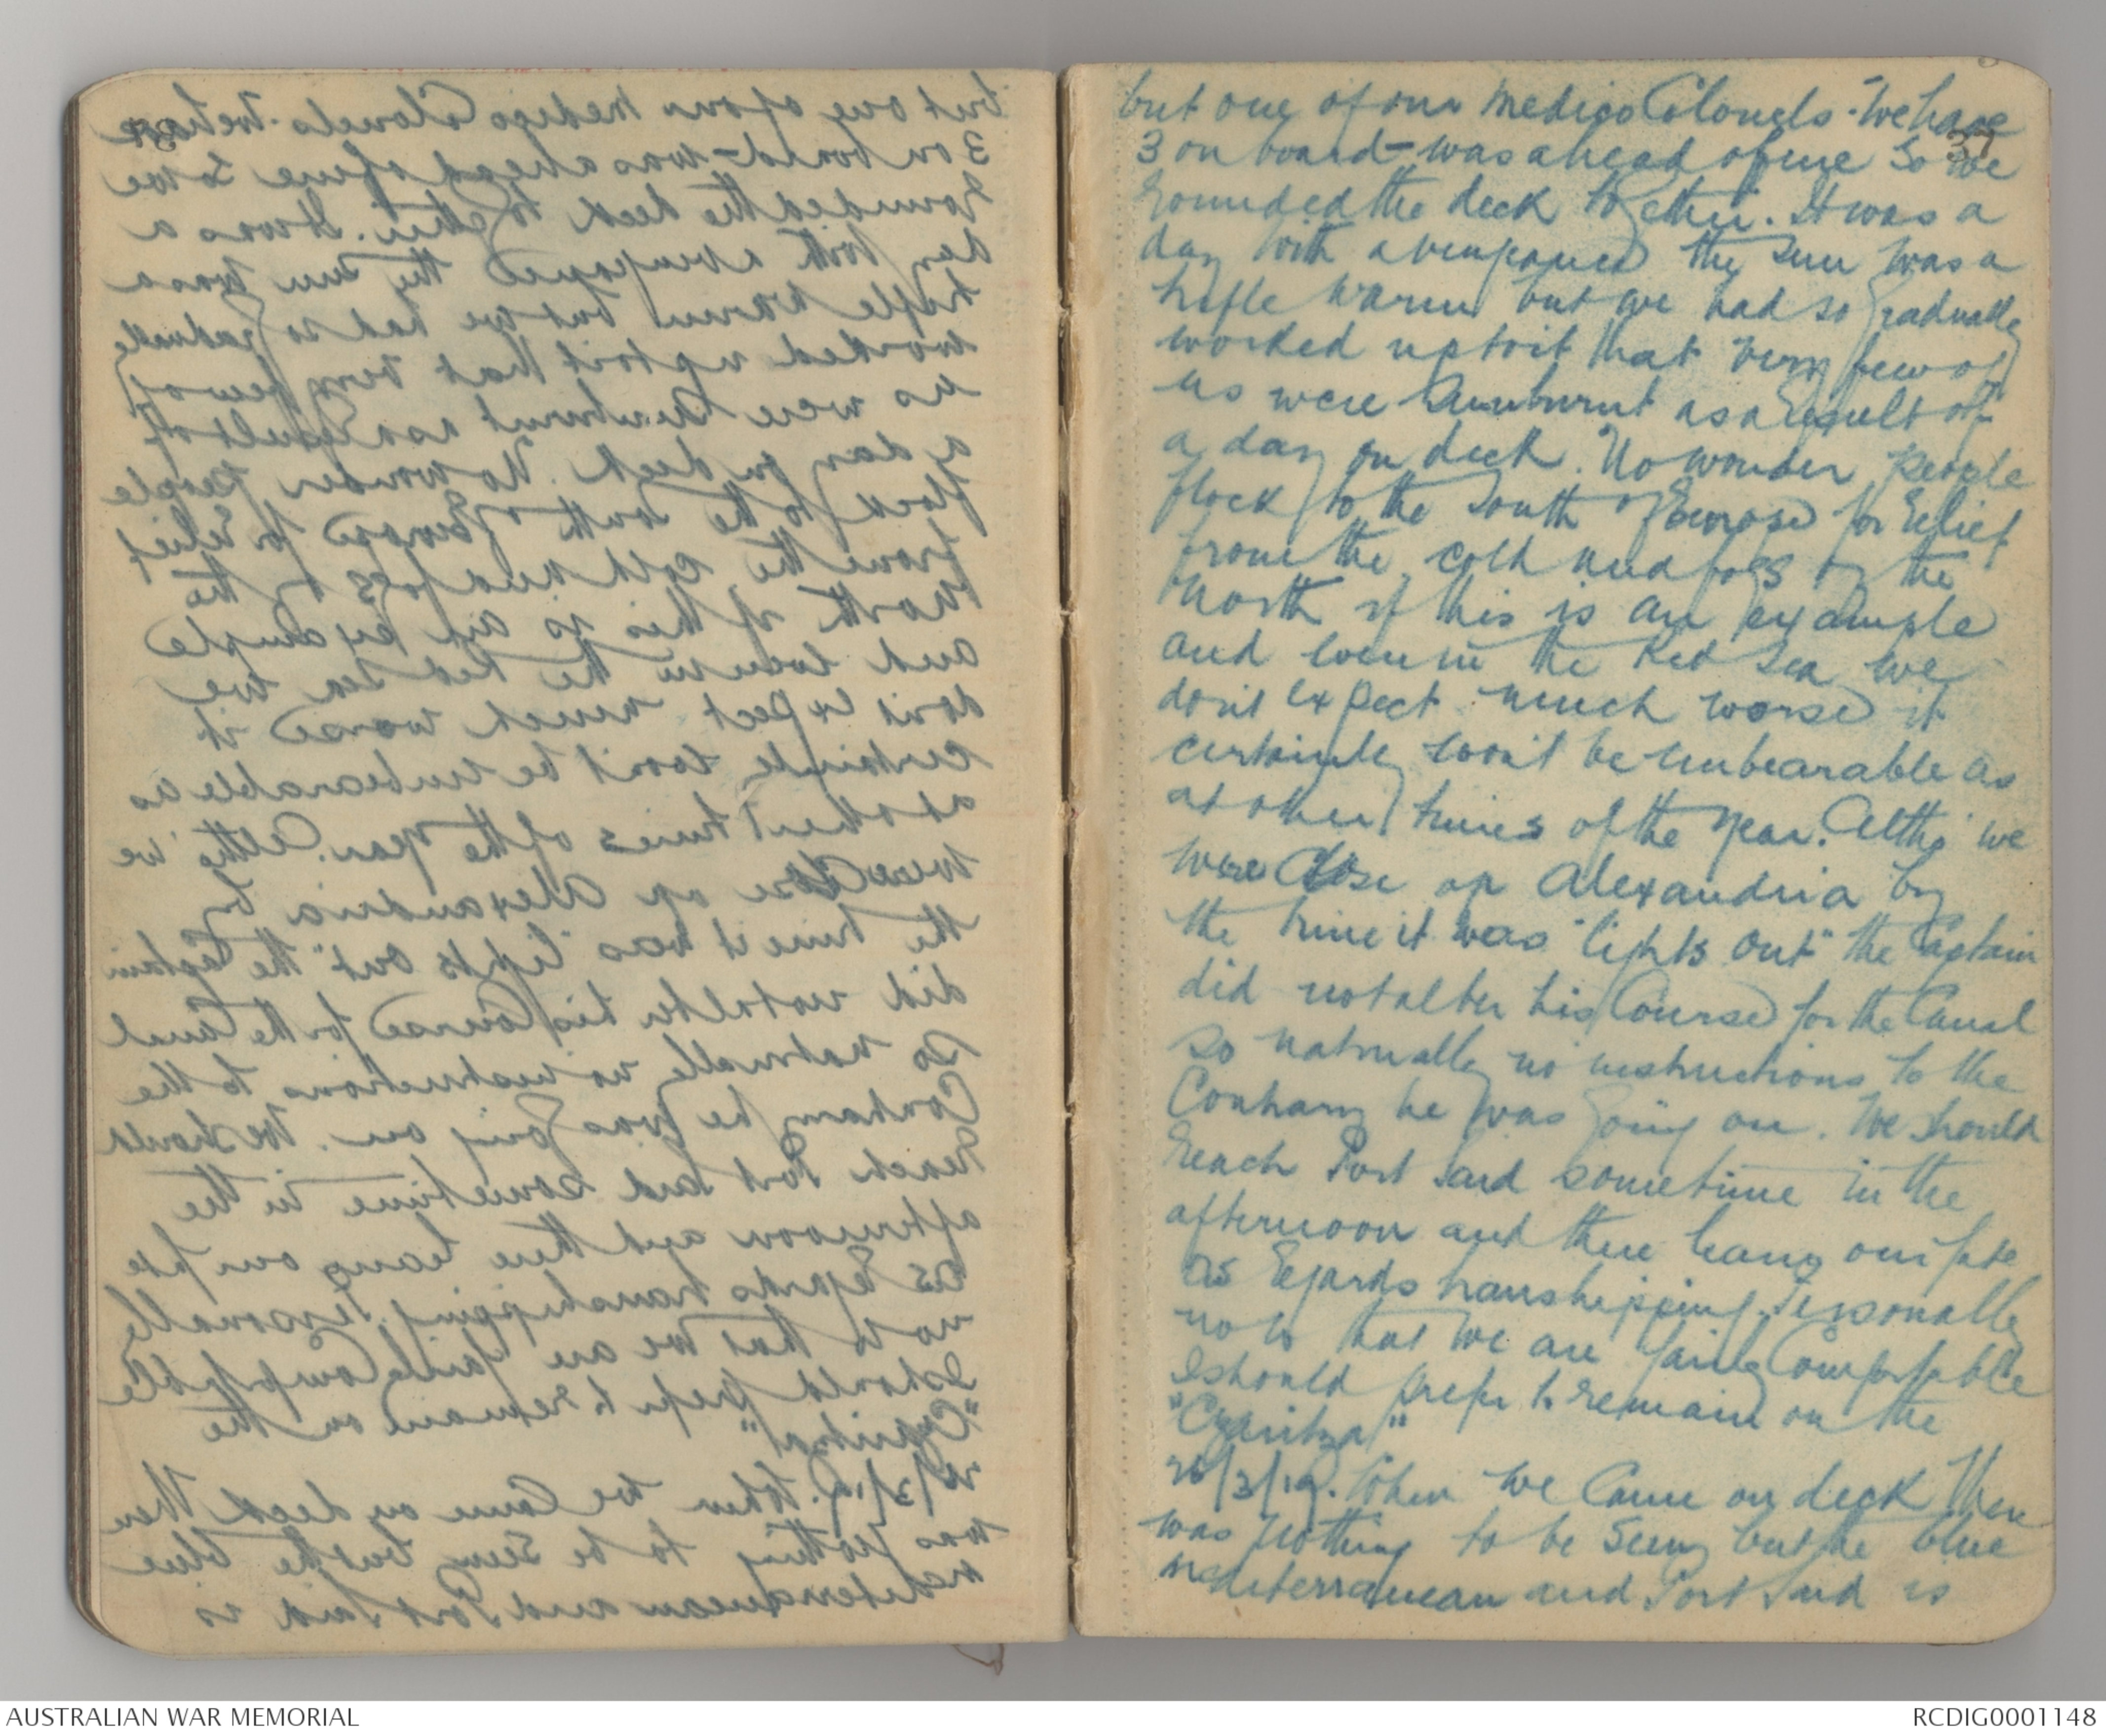 37
but one of our medico Colonels - we have
3 on board - was ahead of me so we
rounded the deck together. It was a
day with a vengeance the sun was a
trifle warm but we had so gradually
worked up to it that very few of
us were sunburnt as a result of
a day on deck. No wonder people
flock to the South of Europe for relief
from the cold and fogs of the
North if this is an example
and even in the Red Sea we
don't expect much worse it
certainly won't be unbearable as
at other times of the year. Altho' we
were close on Alexandria by
the time it was "lights out" the Captain
did not alter his course for the Canal
so naturally no instructions to the
Contrary he was going on. We should
reach Port Said sometime in the
afternoon and there learn our fate
as regards transhipping. Personally
now that we are fairly Comfortable
I should prefer to remain on the
"Czaritza"
26/3/19. When we came on deck there
was nothing to be seen but the blue
mediterranean and Port Said is
AUSTRALIAN WAR MEMORIAL
RCDIG0001148